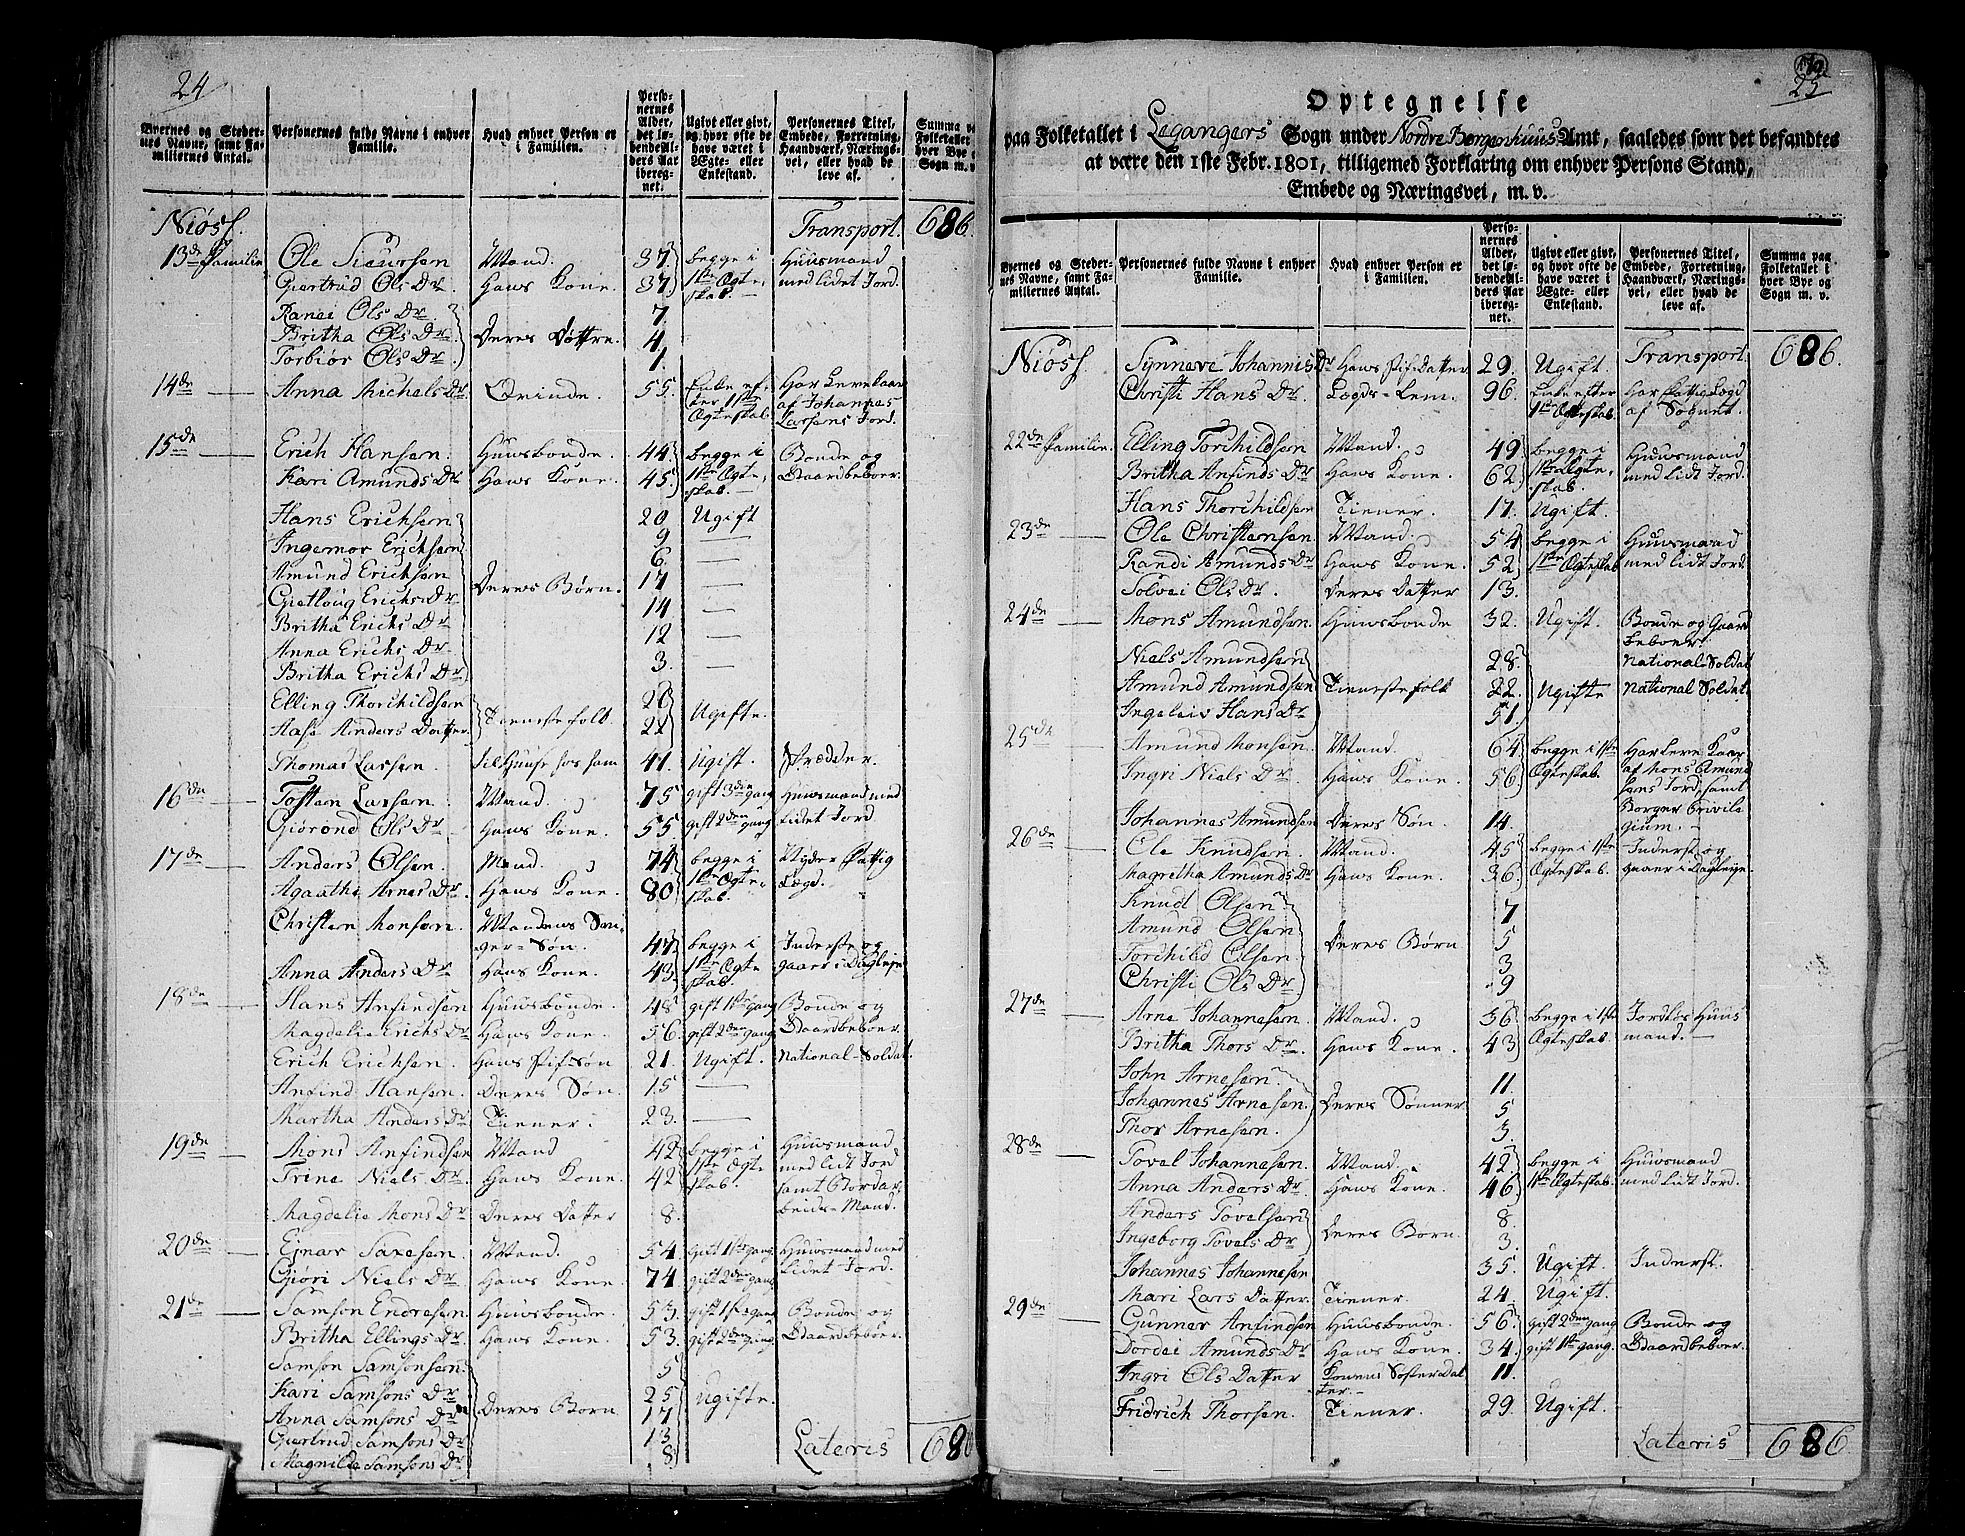 24
Byernes og Steder-
nes Navne, samt Fa-
miliernes Antal.
Personernes fulde Navne i enhver
Familie.
Hvad enhver Person er
i Familien.
Perso-
nernes
Alder,
det lø-
bende Al-
ders Aar
ibereg-
net.
Ugivt eller givt,
og hvor ofte de
have været i
Ægte- eller
Enkestand.
Personernes Titel,
Embede, Forretning,
Haandværk, Nærings-
vei, eller hvad de
leve af.
Summa
Folketallet
hver Bye
Sogn m. v.
Niøss. Transport. 686.
13de Familie Ole Siursen Mand. 37 begge i Huusmand
Giertrud Ols Dr. Hans Kone. 37 1ste Ægte- med lidet Jord.
skab.
Ranei Ols Dr. 7.
Britha Ols Dr. Deres Døttre 4.
Torbiør Ols Dr. 1.
14de Anna Michels Dr. Qvinde. 55. Enke ef- Har Leverkaar
ter 1ste af Johannes
Ægteskab. Larsens Jord.
15de Erich Hansen. Huusbonde. 44 begge i Bonde og
Kari Amunds Dr. Hans Kone. 45. 1ste Ægte- Gaardbeboer.
skab.
Hans Erichsen 20 Ugift
Ingemor Erichsen 9 —
Amund Erichsen 6. —
Gietloug Erichs Dr. Deres Børn. 17 —
Britha Erichs Dr. 14 —
Anna Erichs Dr. 12 —
Britha Erichs Dr. 3. —
Elling Thorchildsen 20
Aase Anders Datter. Tienestefolk 22 Ugifte.
Thomas Larsen til Huuse hos ham 41. Ugift. Skrædder.
16de Tosten Larsen Mand. 75 gift 3den gang Huusmand med
Giørond Ols Dr. Hans Kone. 55 gift 2den gang lidet Jord
17de Anders Olsen. Mand. 74 begge i Nyder Fattig
Agaathe Arnes Dr. Hans Kone. 80 1ste Ægte- Lægd.
skab.
Christen Monsen. Mandens Svi-
ger-Søn. 47. begge i Inderste og
Anna Anders Dr. Hans Kone. 43. 1ste Ægte gaaer i Dagleje
skab.
18de Hans Anfindsen Huusbonde. 48 gift 1ste gang Bonde og
Magdelie Erichs Dr. Hans Kone. 56. gift 2den gang Gaardbeboer.
Erich Erichsen. Hans Stif-Søn 21. Ugift. National-Soldat.
Anfind Hansen. Deres Søn. 15 —
Martha Anders Dr. Tiener. 23. —
19de Mons Anfindsen Mand 42 begge i Huusmand
Trine Niels Dr. Hans Kone. 42 1ste Ægte med lidt Jord
skab. samt Bordar-
Magdelie Mons Dr. Deres Datter 8. beids-Mand.
20de Ejnar Saxesen. Mand. 54 Gift 1ste gang Huusmand med
Giøri Niels Dr. Hans Kone. 74 gift 2den gang lidet Jord.
21de Samson Endresen Huusbonde. 53. gift 1ste gang Bonde og
Britha Ellings Dr. Hans Kone. 53. gift 2den gang. Gaardbeboer.
Samson Samsonsen. 5
Kari Samsons Dr. 25
Anna Samsons Dr. Deres Børn 17 Ugifte.
Giertrud Samsons Dr. 13
Magnilde Samsons Dr. 8
Lateris 686
25
Optegnelse
paa Folketallet i Legangers Sogn under Nordre Bergenhuus Amt, saaledes som det befandtes
at være den 1ste Febr. 1801, tilligemed Forklaring om enhver Persons Stand,
Embede og Næringsvei, m. v.
Byernes og Steder-
nes Navne, samt Fa-
miliernes Antal.
Personernes fulde Navne i enhver
Familie.
Hvad enhver Person er
i Familien.
Perso-
nernes
Alder,
det lø-
bende Al-
ders Aar
ibereg-
net.
Ugivt eller givt,
og hvor ofte de
have været i
Ægte- eller
Enkestand.
Personernes Titel,
Embede, Forretning,
Haandværk, Nærings-
vei, eller hvad de
leve af.
Summa paa
Folketallet i
hver Bye og
Sogn m. v.
Niøss. Synneve Johannis Dr. Hans Stif-Datter 29. Ugift. Transport. 686.
Christi Hans Dr. Lægds-Lem. 96. Enke efter Har Fattig Lægd
1ste Ægteskab af Sognet.
22de Familie. Elling Torchildsen Mand. 49. begge i Huusmand
Britha Anfinds Dr. Hans Kone. 62. 1ste Ægte- med lidt Jord.
skab.
Hans Thorchildsen Tiener. 17. Ugift.
23de Ole Christensen Mand. 54 begge i Huusmand
Randi Amunds Dr. Hans Kone. 52. 1ste Ægteskab med lidt Jord.
Solvei Ols Dr. Deres Datter 13.
24de Mons Amundsen. Huusbonde 32. Ugift. Bonde og Gaard
beboer.
Niels Amundsen 28. National-Soldat
Amund Amundsen Tienestefolk 22. Ugifte National Soldat.
Ingeleiv Hans Dr. 51.
25de Amund Monsen. Mand. 64 begge i 1ste Har Leve Kaar
Ingri Niels Dr. Hans Kone. 56 Ægteskab. af Mons Amund
sens Jord, samt
Borger Privile
Johannes Amundsen Deres Søn. 14. gium.
26de Ole Knudsen. Mand. 45 begge i 1ste Inderst og
Magretha Amunds Dr. Hans Kone. 36 Ægteskab. gaaer i Dagleje.
Knud Olsen 7
Amund Olsen 5
Torchild Olsen Deres Børn 3
Christi Ols Dr. 9
27de Arne Johannesen. Mand. 56 begge i 1ste Jordløs Huus
Britha Thors Dr. Hans Kone. 43 Ægteskab. mand.
John Arnesen. 11.
Johannes Arnesen. Deres Sønner 5
Thor Arnesen. 3.
28de Tovel Johannesen. Mand. 42 begge i Huusmand
Anna Anders Dr. Hans Kone. 46. 1ste Ægteskab. med lidt Jord.
Anders Tovelsen 8.
Ingeborg Tovels Dr. Deres Børn. 3.
Johannes Johannesen 35. Ugift. Inderst.
Mari Lars Datter. Tiener. 24. Ugift.
29de Gunner Anfindsen Huusbonde. 56. gift 2den gang Bonde og
Dordei Amunds Dr. Hans Kone. 34. gift 1ste gang. Gaardbeboer.
Ingri Ols Datter Konens Søster Dat 11.
ter.
Fridrich Thorsen. Tiener. 29. Ugift.
Lateris 686.